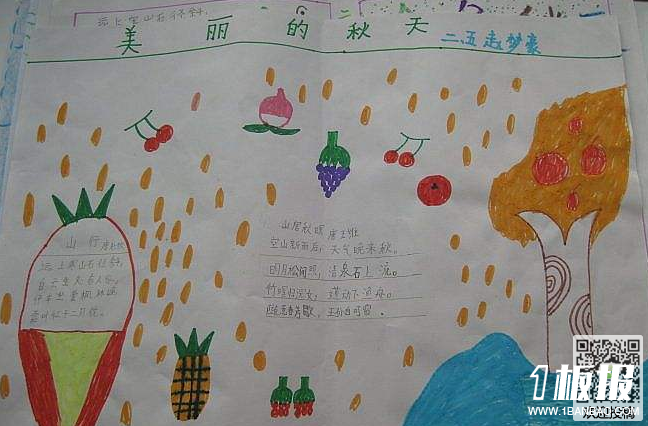 远上寒山石径斜
美丽的秋天
二五 赵梦豪
山行 唐杜牧
远上寒山石径斜,
白云生处有人家。
停车坐爱枫林晚
霜叶红于二月花。
山居秋暝 唐王维
空山新雨后,天气晚来秋。
明月松间照,清泉石上流。
竹喧归浣女,莲动下渔舟。
随意春芳歇,王孙自可留。
1板报
WWW.1BANBAO.COM